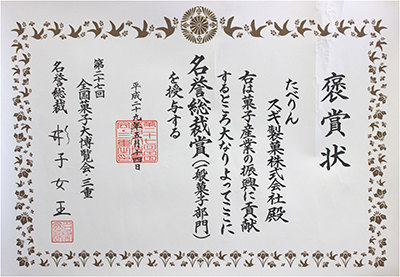 褒賞状
たべりん
スギ製菓株式会社殿
右は菓子産業の振興に貢献
するところ大なりよってここに
名誉総裁賞(一般菓子部門)
を授与する
平成二十九年五月十四日
第二十七回
全国菓子大博覧会 三重
名誉総裁 彬子女王